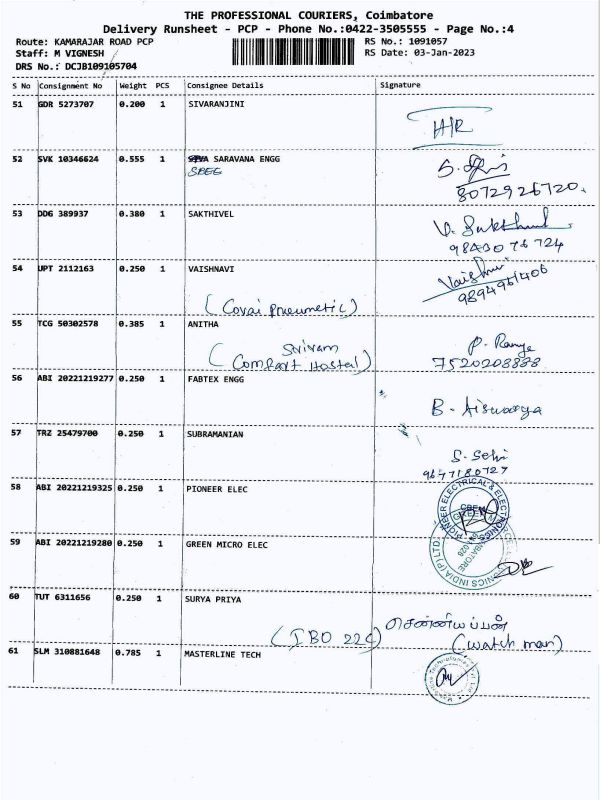 THE PROFESSIONAL COURIERS, Coimbatore
Delivery Runsheet - PCP - Phone No.:0422-3505555 - Page No.:4
Route: KAMARAJAR ROAD PCP
RS No.: 1091057
Staff: M VIGNESH
RS Date: 03-Jan-2023
DRS No.: DCJB109105704
S No Consignment No Weight PCS Consignee Details Signature
51 GDR 5273707 0.200 1 SIVARANJINI
H/R
52 SVK 10346624 0.555 1 SARAVANA ENGG
SREE
8072926720.
53 DDG 389937 0.380 1 SAKTHIVEL
V. Sakthivel
9843076724
54 UPT 2112163 0.250 1 VAISHNAVI
Vaishnavi
9894961406
(Covai pneumetic)
55 TCG 50302578 0.385 1 ANITHA
(Sriram
Comfort Hostal)
7520208888
56 ABI 20221219277 0.250 1 FABTEX ENGG
B. Aiswarya
57 TRZ 25479700 0.250 1 SUBRAMANIAN
S. Selvi
9647180727
58 ABI 20221219325 0.250 1 PIONEER ELEC
PIONEER ELECTRICAL & ELECTRONICS
59 ABI 20221219280 0.250 1 GREEN MICRO ELEC
60 TUT 6311656 0.250 1 SURYA PRIYA
சென்னியப்பன்
(IBO 224) (watch man)
61 SLM 310881648 0.785 1 MASTERLINE TECH